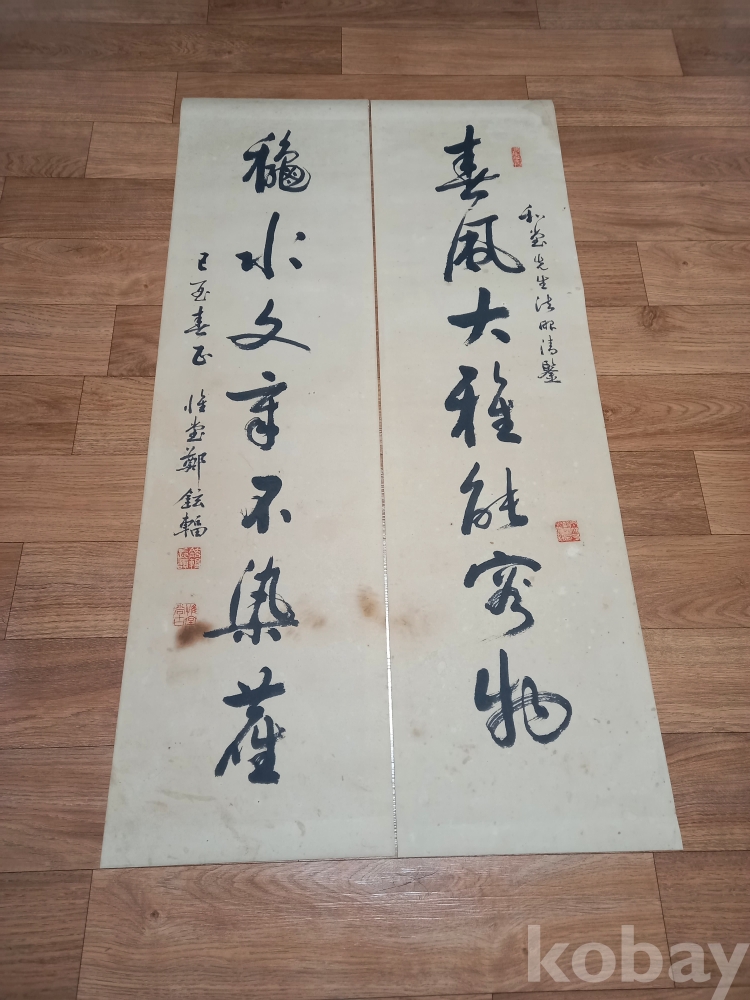 和堂先生法眼清鑒
春風大雅能容物
龝水文章不染塵
己酉春正 惟堂鄭鉉輻
kobay